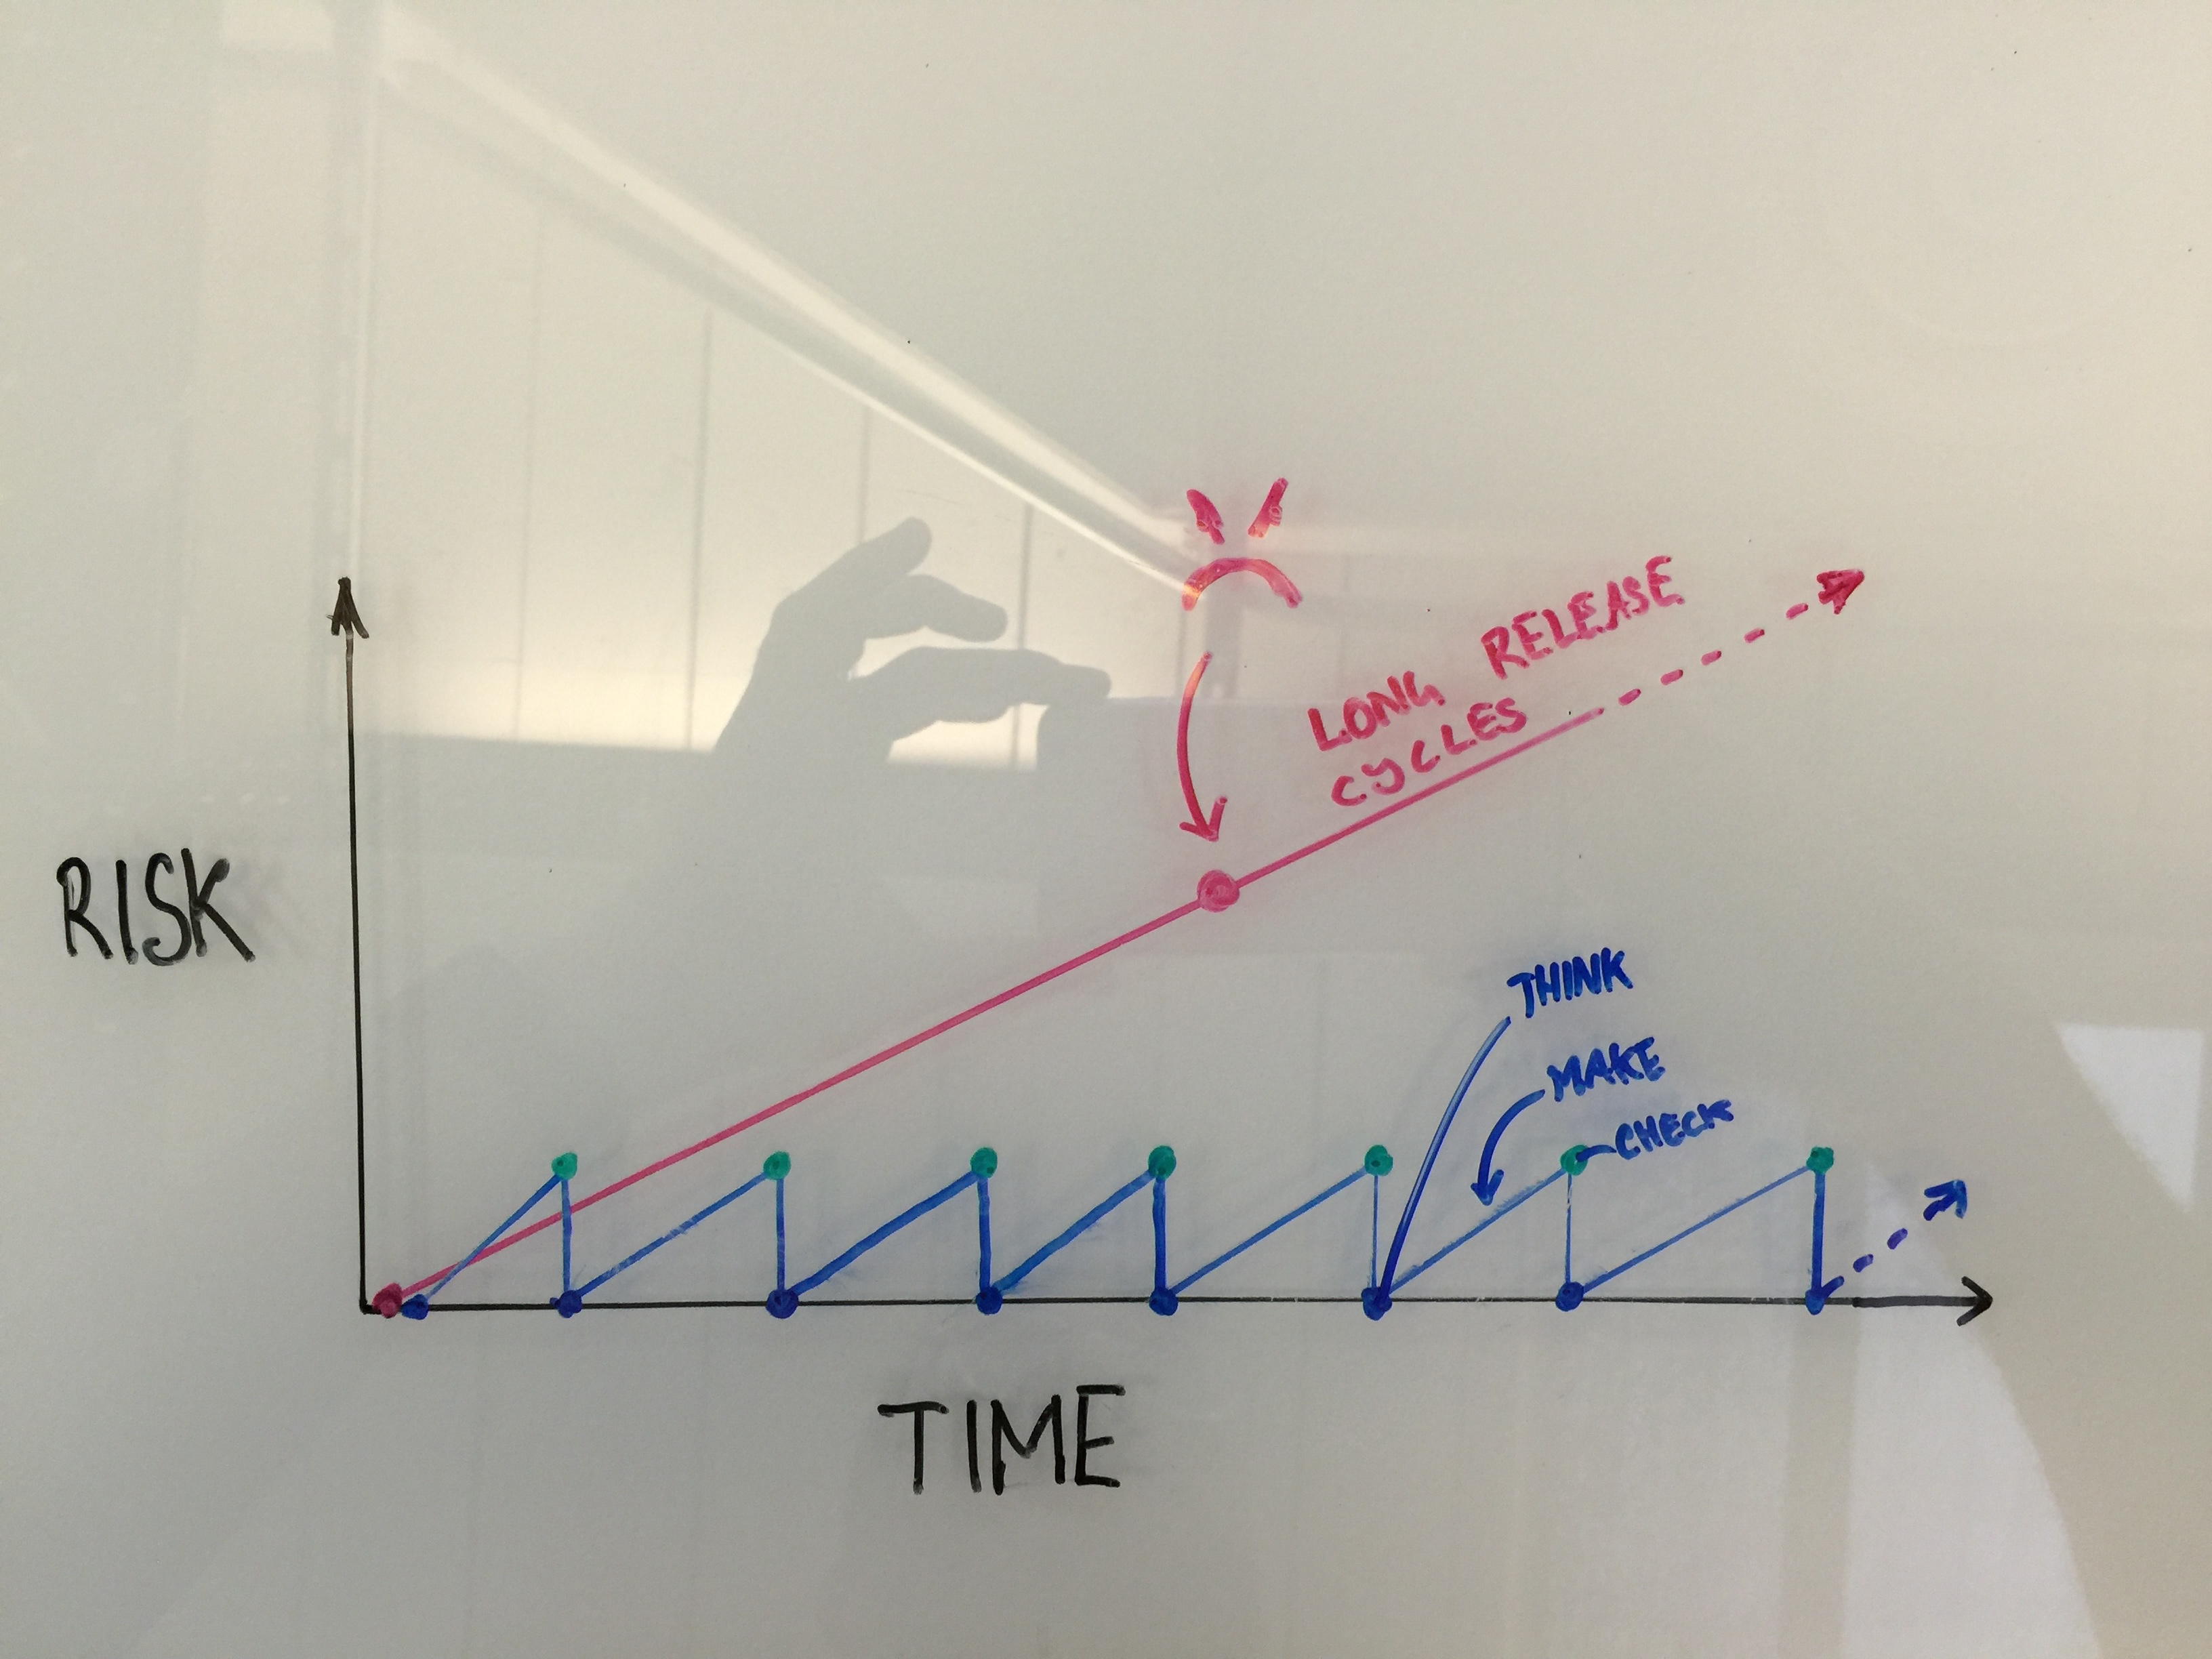 LONG RELEASE
CYCLES
RISK
THINK
MAKE
CHECK
TIME